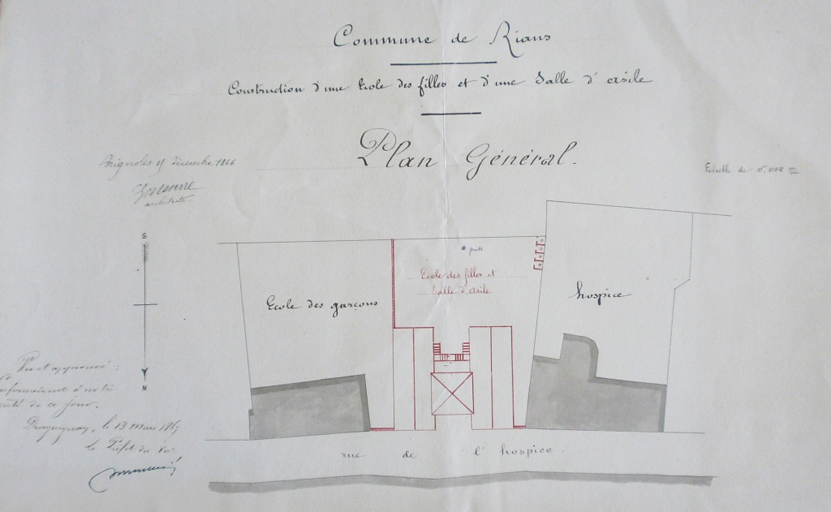 Commune de Rians
Construction d'une Ecole des filles et d'une Salle d'asile
Plan Général.
Brignoles décembre 1866
architecte
Echelle de 0,008
S
N
puits
Ecole des filles et
Salle d'asile
Ecole des garçons
hospice
Vu et approuvé :
conformément à notre
arrêté de ce jour.
Draguignan, le 13 Mars 1867
le Préfet du Var
rue de l'hospice.